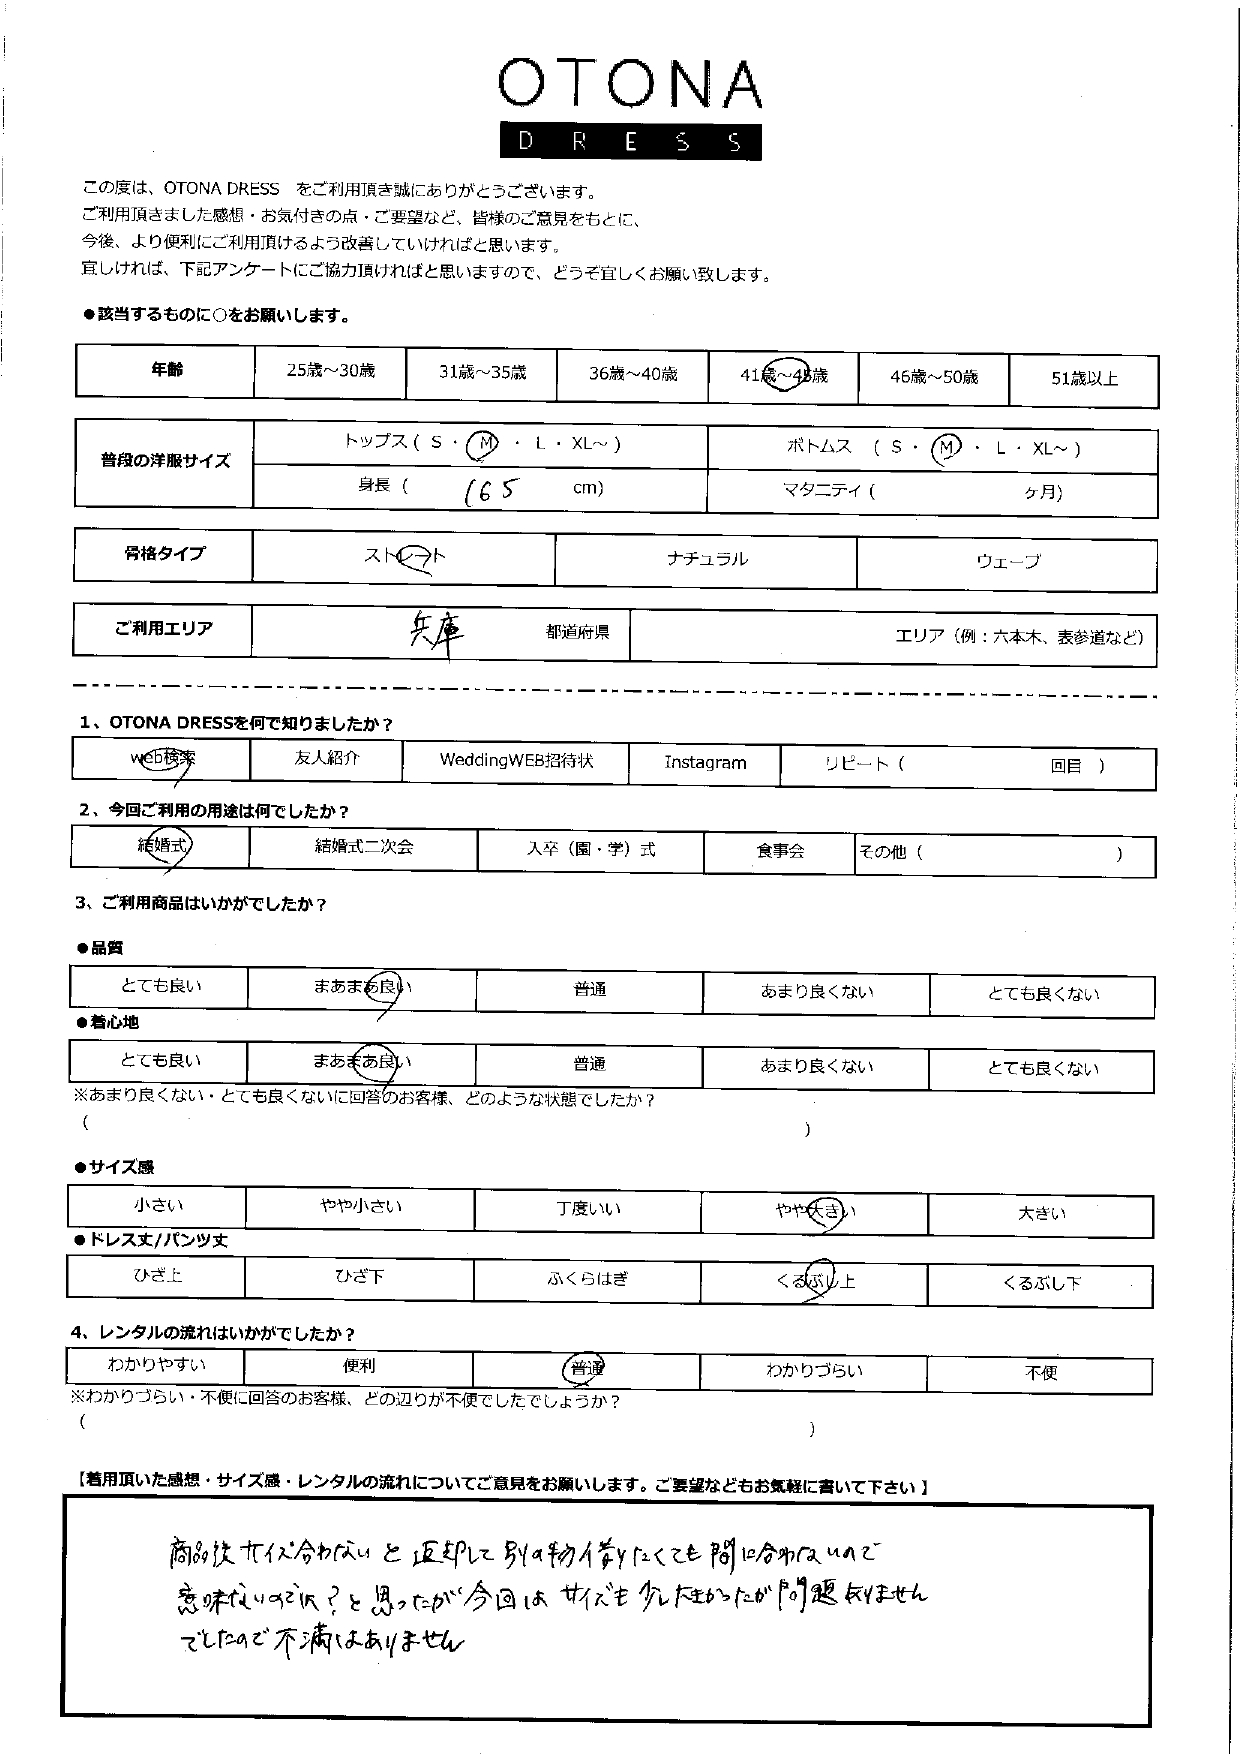 OTONA
DRESS
この度は、OTONA DRESS　をご利用頂き誠にありがとうございます。
ご利用頂きました感想・お気付きの点・ご要望など、皆様のご意見をもとに、
今後、より便利にご利用頂けるよう改善していければと思います。
宜しければ、下記アンケートにご協力頂ければと思いますので、どうぞ宜しくお願い致します。
●該当するものに○をお願いします。
年齢 25歳～30歳 31歳～35歳 36歳～40歳 41歳～45歳 46歳～50歳 51歳以上
普段の洋服サイズ トップス ( S ・ M ・ L ・ XL～ ) ボトムス ( S ・ M ・ L ・ XL～ )
身長 ( 165 cm) マタニティ ( ヶ月)
骨格タイプ ストレート ナチュラル ウェーブ
ご利用エリア 兵庫 都道府県 エリア（例：六本木、表参道など）
1、OTONA DRESSを何で知りましたか？
web検索 友人紹介 WeddingWEB招待状 Instagram リピート ( 回目 )
2、今回ご利用の用途は何でしたか？
結婚式 結婚式二次会 入卒（園・学）式 食事会 その他 ( )
3、ご利用商品はいかがでしたか？
●品質
とても良い まあまあ良い 普通 あまり良くない とても良くない
●着心地
とても良い まあまあ良い 普通 あまり良くない とても良くない
※あまり良くない・とても良くないに回答のお客様、どのような状態でしたか？
( )
●サイズ感
小さい やや小さい 丁度いい やや大きい 大きい
●ドレス丈/パンツ丈
ひざ上 ひざ下 ふくらはぎ くるぶし上 くるぶし下
4、レンタルの流れはいかがでしたか？
わかりやすい 便利 普通 わかりづらい 不便
※わかりづらい・不便に回答のお客様、どの辺りが不便でしたでしょうか？
( )
【着用頂いた感想・サイズ感・レンタルの流れについてご意見をお願いします。ご要望などもお気軽に書いて下さい】
商品後サイズ合わないと返却して別の物借りたくても間に合わないので
意味ないのでは？と思ったが今回はサイズも少し大きかったが問題ありません
でしたので不満はありません